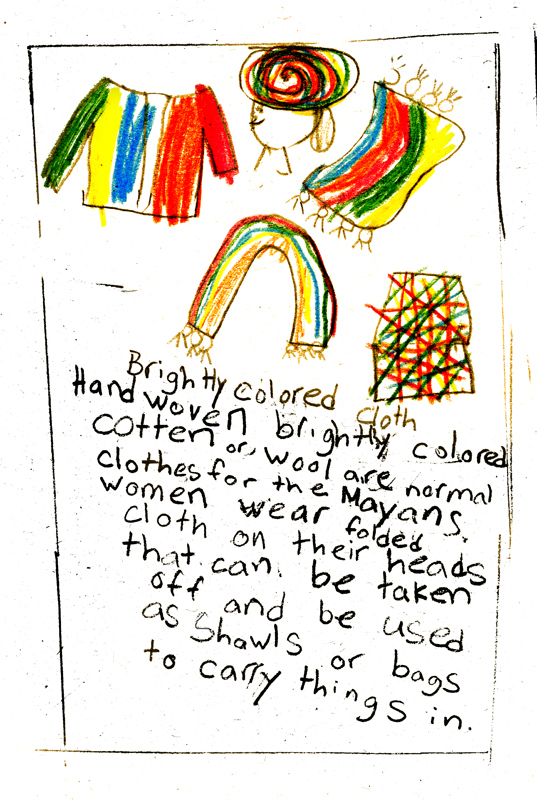 Brightly colored Cloth
Hand woven brightly colored
cotten or wool are normal
clothes for the Mayans.
women wear folded
cloth on their heads
that can be taken
off and be used
as shawls or bags
to carry things in.